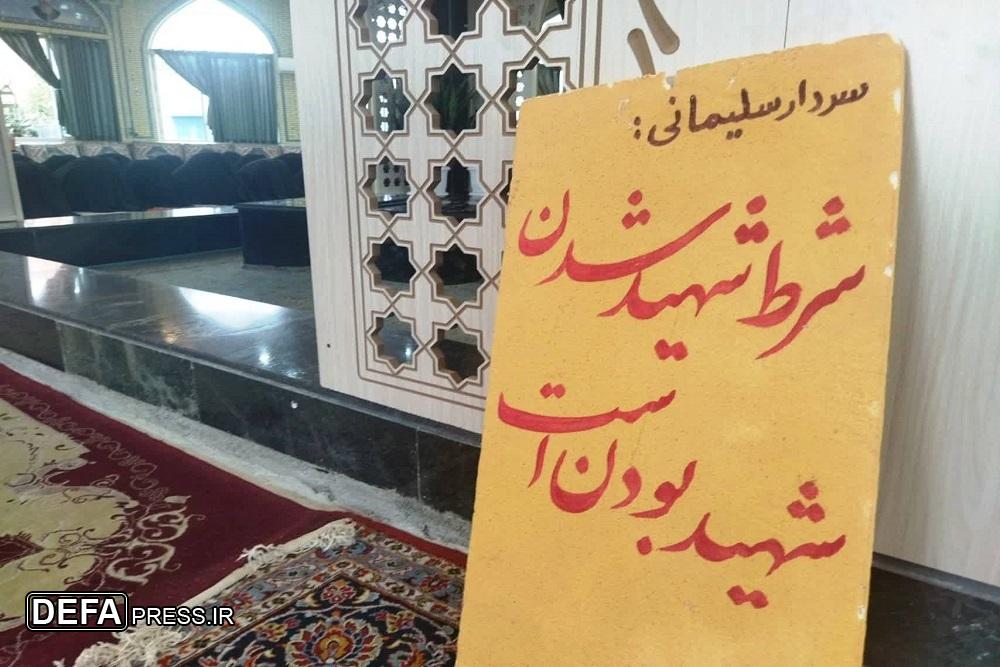 سردار سلیمانی:
شرط شهید شدن
شهید بودن است
DEFAPRESS.IR